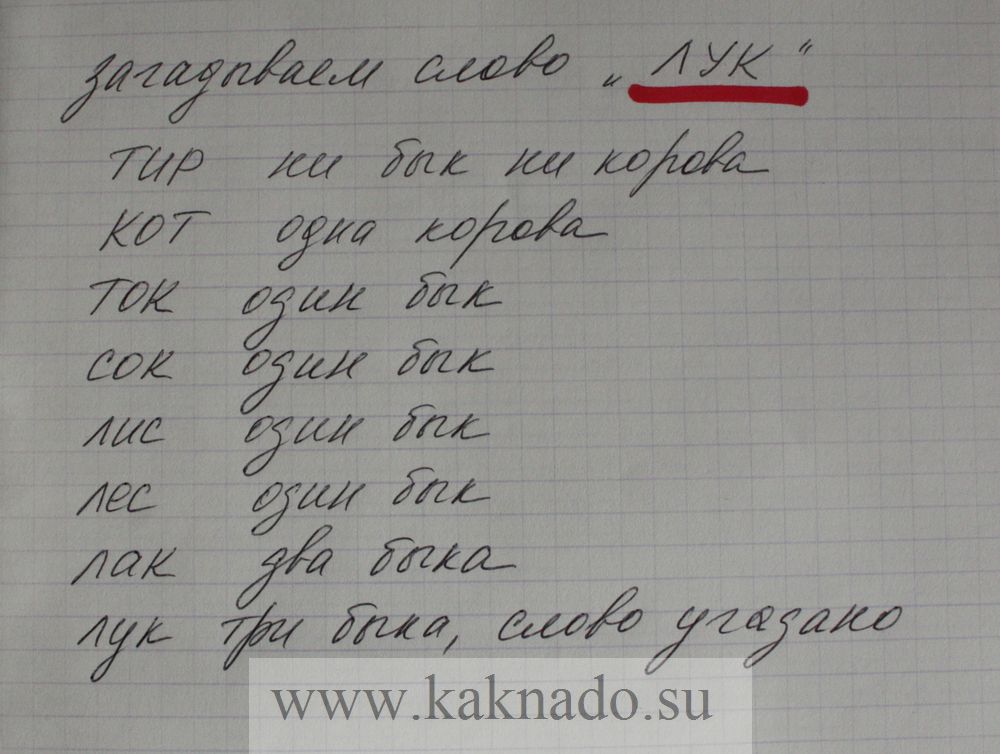 загадываем слово „ЛУК“
ТИР ни бык ни корова
КОТ одна корова
ТОК один бык
СОК один бык
ЛИС один бык
ЛЕС один бык
ЛАК два быка
ЛУК три быка, слово угадано
www.kaknado.su